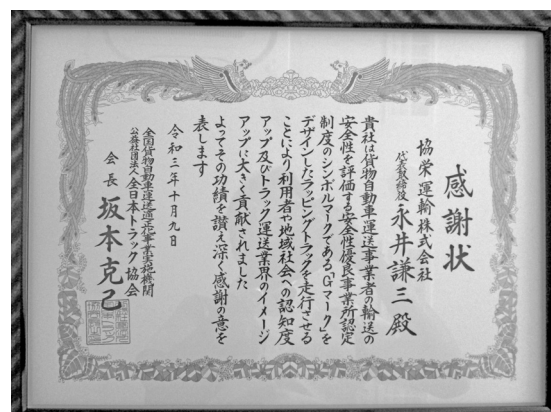 感謝状
協栄運輸株式会社
代表取締役 永井謙三 殿
貴社は貨物自動車運送事業者の輸送の
安全性を評価する安全性優良事業所認定
制度のシンボルマークである「Gマーク」を
デザインしたラッピングトラックを走行させる
ことにより利用者や地域社会への認知度
アップ及びトラック運送業界のイメージ
アップに大きく貢献されました
よってその功績を讃え深く感謝の意を
表します
令和三年十月九日
全国貨物自動車運送適正化事業実施機関
公益社団法人 全日本トラック協会
会長 坂本克己